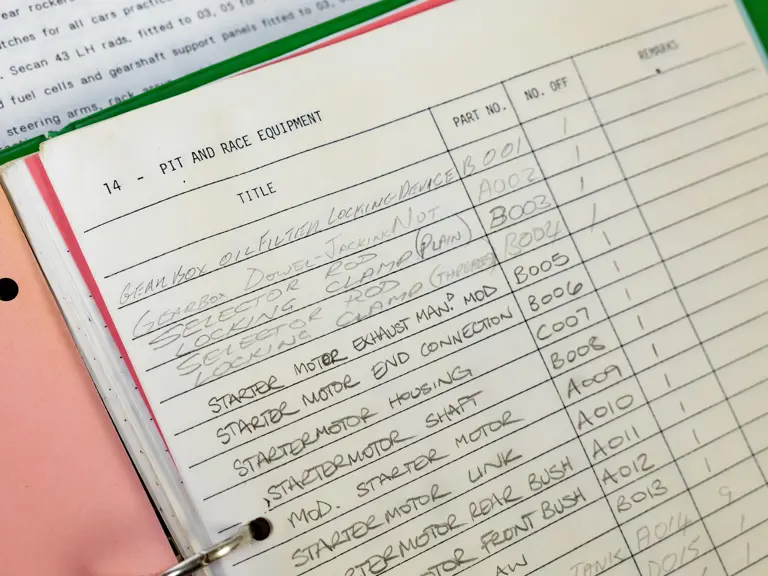 ear rockers
tches for all cars practic
. Secan 43 LH rads. fitted to 03, 05
d fuel cells and gearshaft support panels fitted to 03,
steering arms, rack
14 - PIT AND RACE EQUIPMENT
TITLE PART NO. NO. OFF REMARKS
GEARBOX OIL FILTER LOCKING DEVICE B001 1
GEARBOX DOWEL-JACKING NUT A002 1
SELECTOR ROD
LOCKING CLAMP (PLAIN) B003 1
SELECTOR ROD
LOCKING CLAMP (THREADED) B004 1
STARTER MOTOR EXHAUST MAN.D MOD B005 1
STARTER MOTOR END CONNECTION B006 1
STARTERMOTOR HOUSING C007 1
STARTERMOTOR SHAFT B008 1
MOD. STARTER MOTOR A009 1
STARTERMOTOR LINK A010 1
RTERMOTOR REAR BUSH A011 1
TOR FRONT BUSH A012 1
AW B013 9
TANK A014 1
D015 1